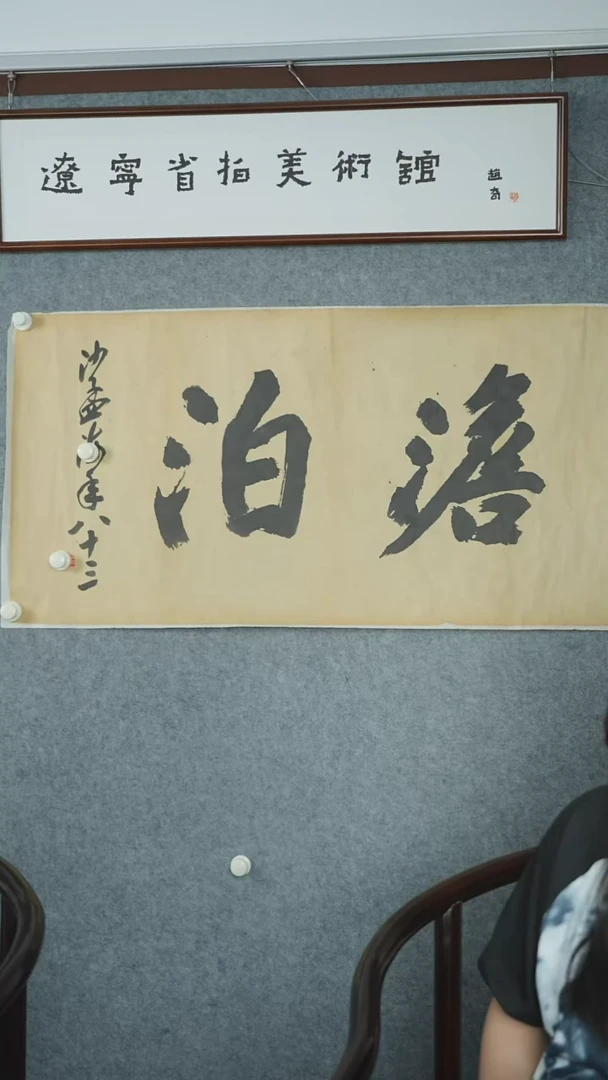 遼寧省拍美術館
趙奇
澹泊
沙孟海年八十三